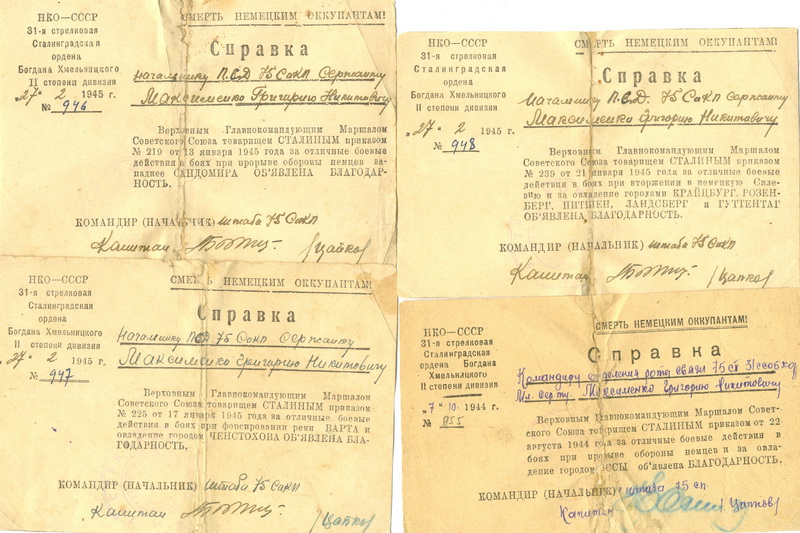 НКО—СССР
31-я стрелковая
Сталинградская
ордена
Богдана Хмельницкого
II степени дивизия
„27“ 2 1945 г.
№ 946
СМЕРТЬ НЕМЕЦКИМ ОККУПАНТАМ!
Справка
Начальнику П.С.Д 75 СаКП Сержанту
Максименко Григорию Никитовичу
Верховным Главнокомандующим Маршалом
Советского Союза товарищем СТАЛИНЫМ приказом
№ 219 от 13 января 1945 года за отличные боевые
действия в боях при прорыве обороны немцев за-
паднее САНДОМИРА ОБ'ЯВЛЕНА БЛАГОДАР-
НОСТЬ.
КОМАНДИР (НАЧАЛЬНИК) штаба 75 СаКП
Капитан /Цапков/
НКО—СССР
31-я стрелковая
Сталинградская
ордена
Богдана Хмельницкого
II степени дивизия
„27“ 2 1945 г.
№ 948
СМЕРТЬ НЕМЕЦКИМ ОККУПАНТАМ!
Справка
Начальнику П.С.Д. 75 СаКП Сержанту
Максименко Григорию Никитовичу
Верховным Главнокомандующим Маршалом
Советского Союза товарищем СТАЛИНЫМ приказом
№ 239 от 21 января 1945 года за отличные боевые
действия в боях при вторжении в немецкую Силе-
зию и за овладение городами КРАЙЦБУРГ, РОЗЕН-
БЕРГ, ПИТШЕН, ЛАНДСБЕРГ и ГУТТЕНТАГ
ОБ'ЯВЛЕНА БЛАГОДАРНОСТЬ.
КОМАНДИР (НАЧАЛЬНИК) штаба 75 СаКП
Капитан /Цапков/
НКО—СССР
31-я стрелковая
Сталинградская
ордена
Богдана Хмельницкого
II степени дивизия
„27“ 2 1945 г.
№ 947
СМЕРТЬ НЕМЕЦКИМ ОККУПАНТАМ!
Справка
Начальнику ПСД 75 СаКП Сержанту
Максименко Григорию Никитовичу
Верховным Главнокомандующим Маршалом
Советского Союза товарищем СТАЛИНЫМ приказом
№ 225 от 17 января 1945 года за отличные боевые
действия в боях при форсировании реки ВАРТА и
овладение городом ЧЕНСТОХОВА ОБ'ЯВЛЕНА БЛА-
ГОДАРНОСТЬ.
КОМАНДИР (НАЧАЛЬНИК) штаба 75 СаКП
Капитан /Цапков/
НКО—СССР
31-я стрелковая
Сталинградская
ордена Богдана
Хмельницкого
II степени дивизия
„7“ 10 1944 г.
№ 955
СМЕРТЬ НЕМЕЦКИМ ОККУПАНТАМ!
Справка
Командиру отделения роты связи 75 СП
Мл. сер-ту. Максименко Григорию Никитовичу
Верховным Главнокомандующим Маршалом Совет-
ского Союза товарищем СТАЛИНЫМ приказом от 22
августа 1944 года за отличные боевые действия в
боях при прорыве обороны немцев и за овла-
дение городом ЯССЫ об'явлена БЛАГОДАРНОСТЬ.
КОМАНДИР (НАЧАЛЬНИК) штаба 75 сп.
Капитан /Цапков/